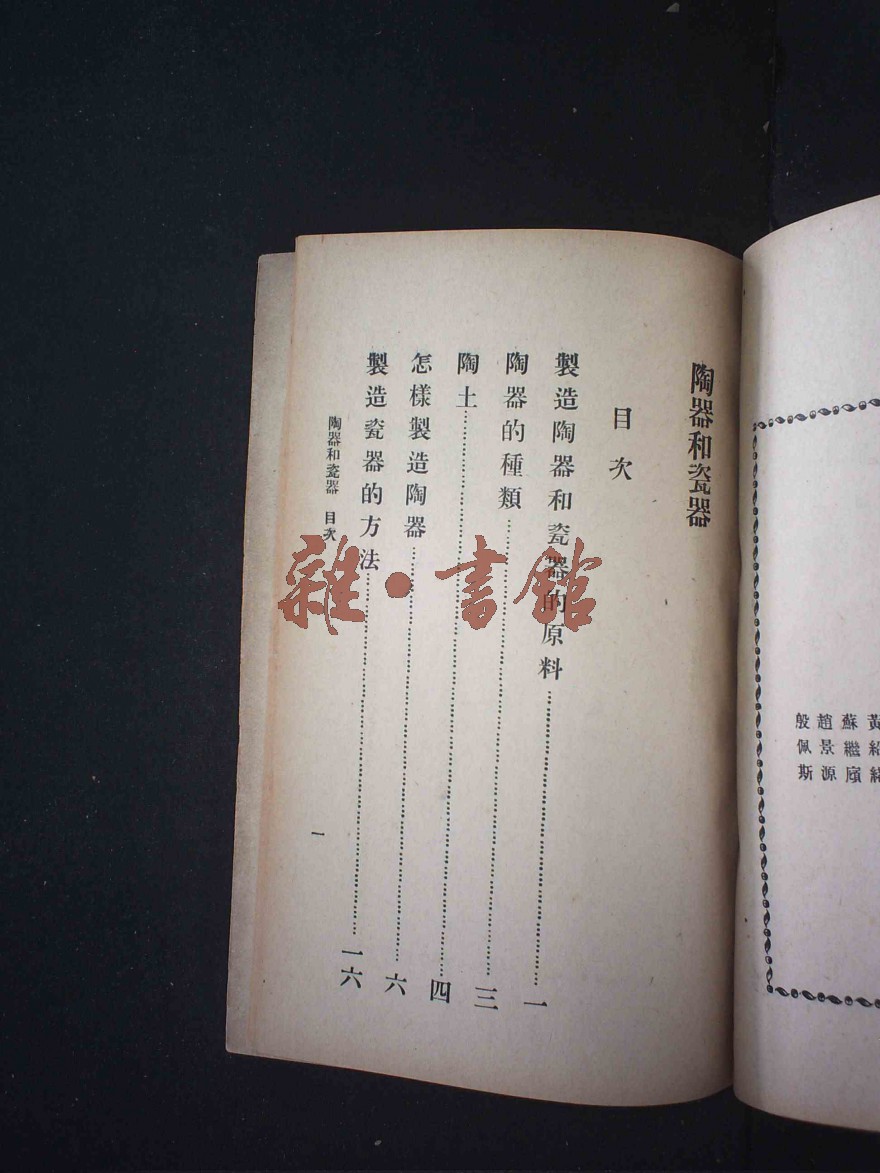 黃
蘇繼廎
趙景源
殷佩斯
陶器和瓷器
目次
製造陶器和瓷器的原料……一
陶器的種類……三
陶土……四
怎樣製造陶器……六
製造瓷器的方法……一六
陶器和瓷器 目次
一
雜·書館